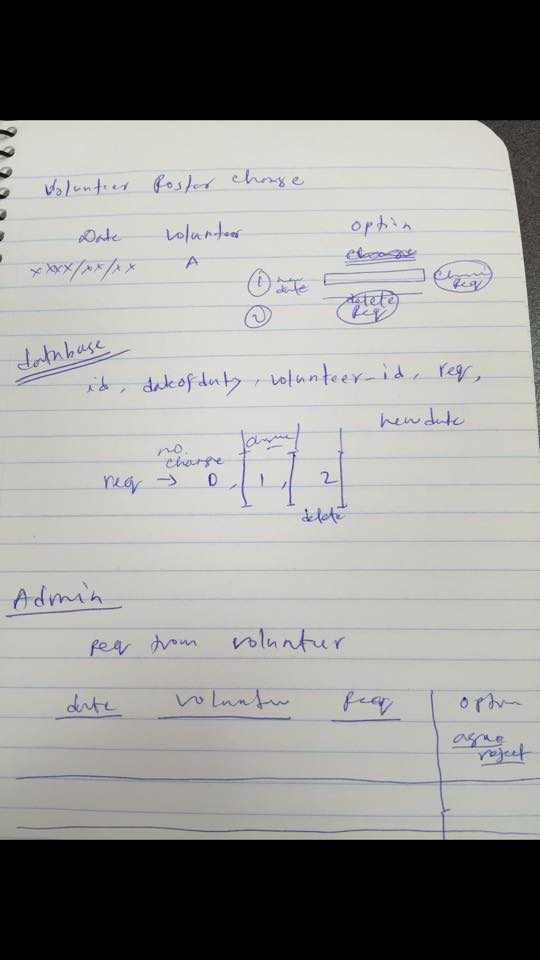 Volunteer Roster change
Date Volunteer Option
xxxx/xx/xx A
1 new date Req
2 delete Req
database
id, dateofduty, volunteer_id, req,
newdate
no change
req → 0, 1, 2
delete
Admin
req from volunteer
date volunteer Req option
agree
reject